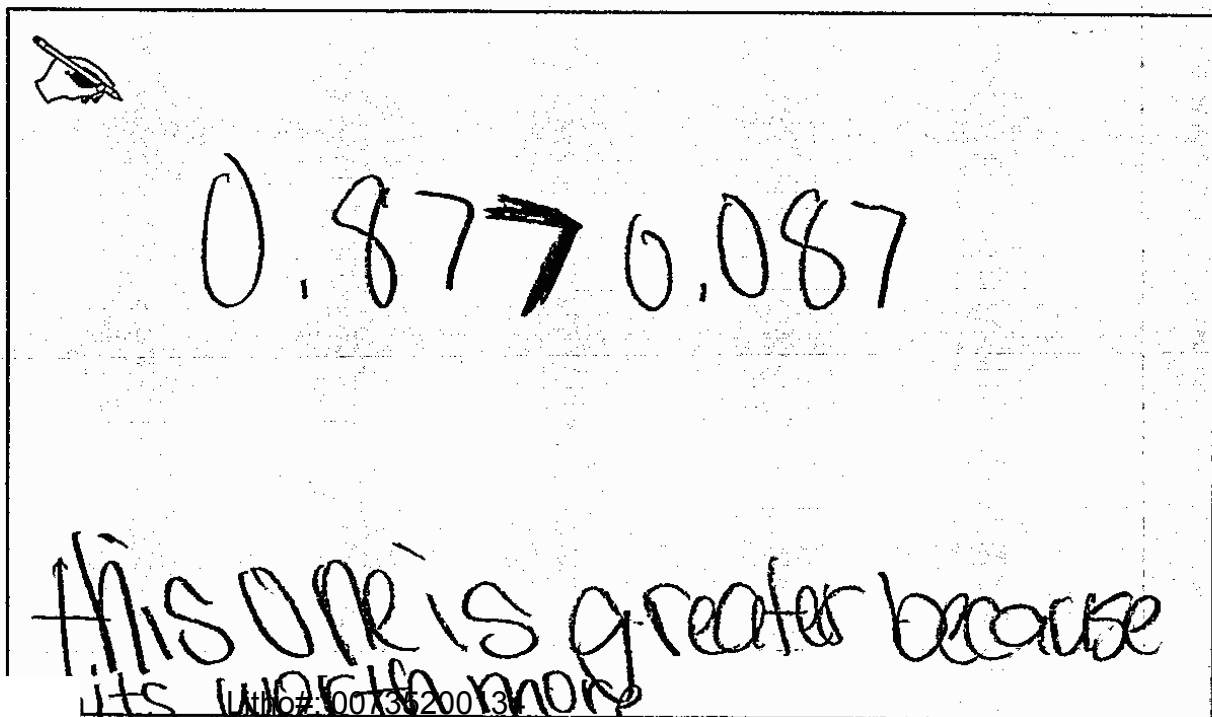 0.87 > 0.087
this one is greater because
its worth more
Litho#: 0073520013